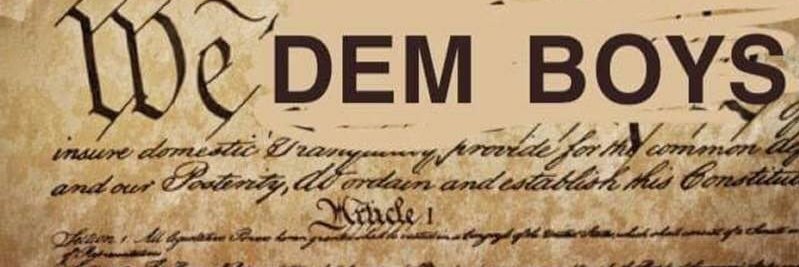 We DEM BOYS
insure domestic Tranquility, provide for the common
and our Posterity, do ordain and establish this
Article I
Section 1. All legislative Powers herein granted shall be vested in a Congress of the United States, which shall consist of a Senate and
of Representatives